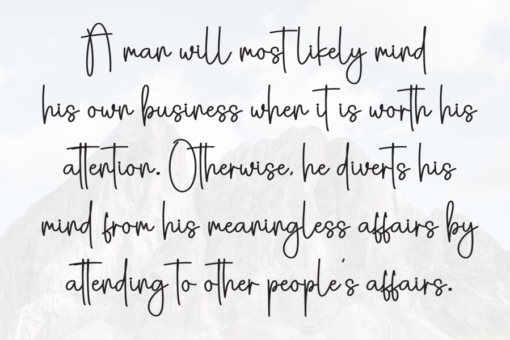 A man will most likely mind
his own business when it is worth his
attention. Otherwise, he diverts his
mind from his meaningless affairs by
attending to other people's affairs.